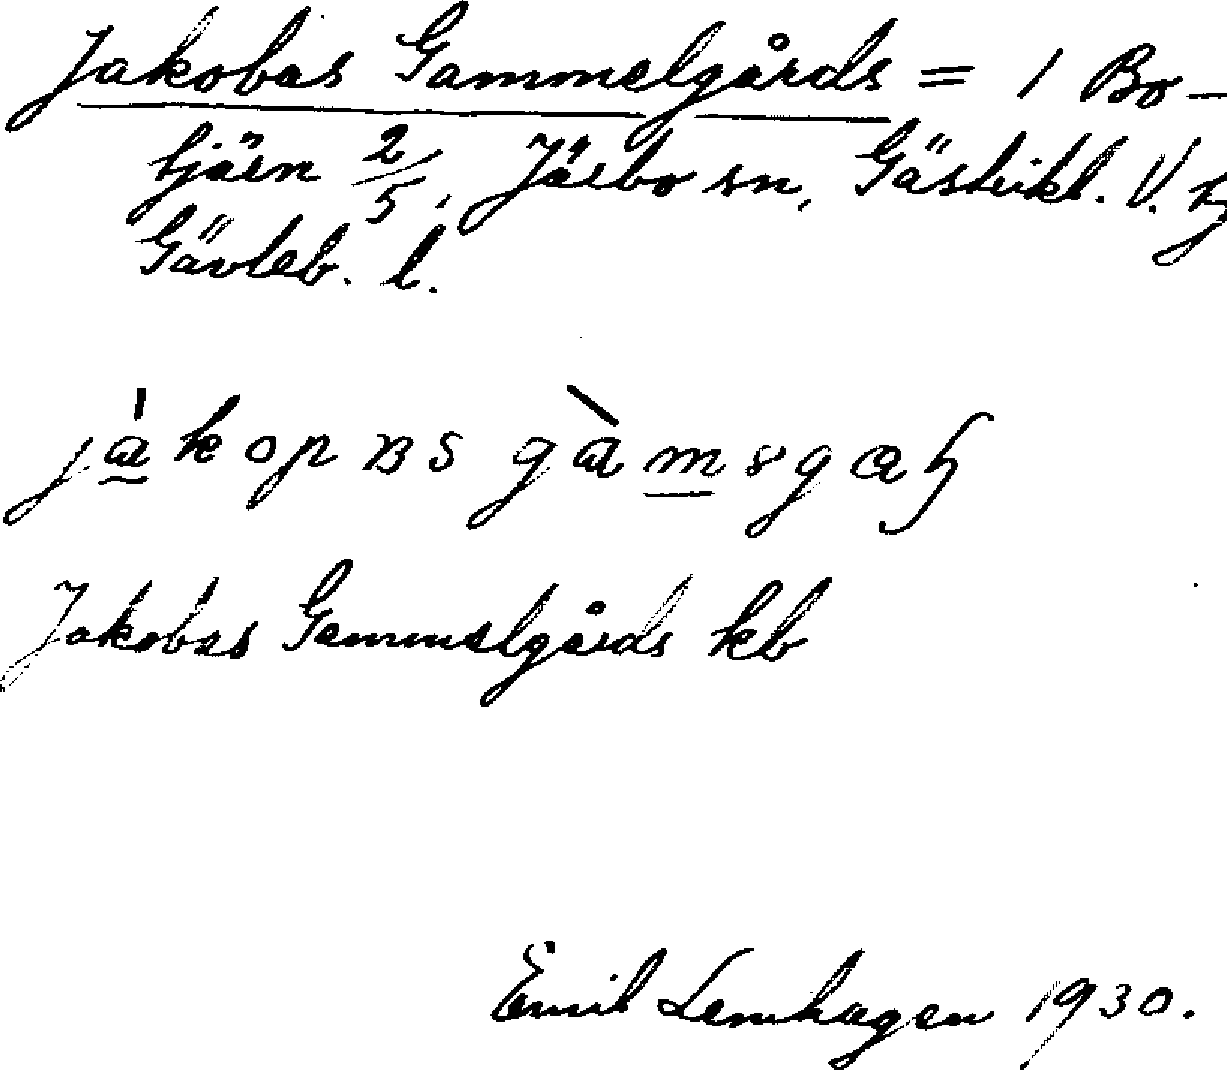 Jakobas Gammelgårds = 1 Bo-
tjärn 2/5, Järbo sn, Gästrikl. V.
Gävleb. l.
Jakobas Gammelgårds kb
Emil Lenhagen 1930.